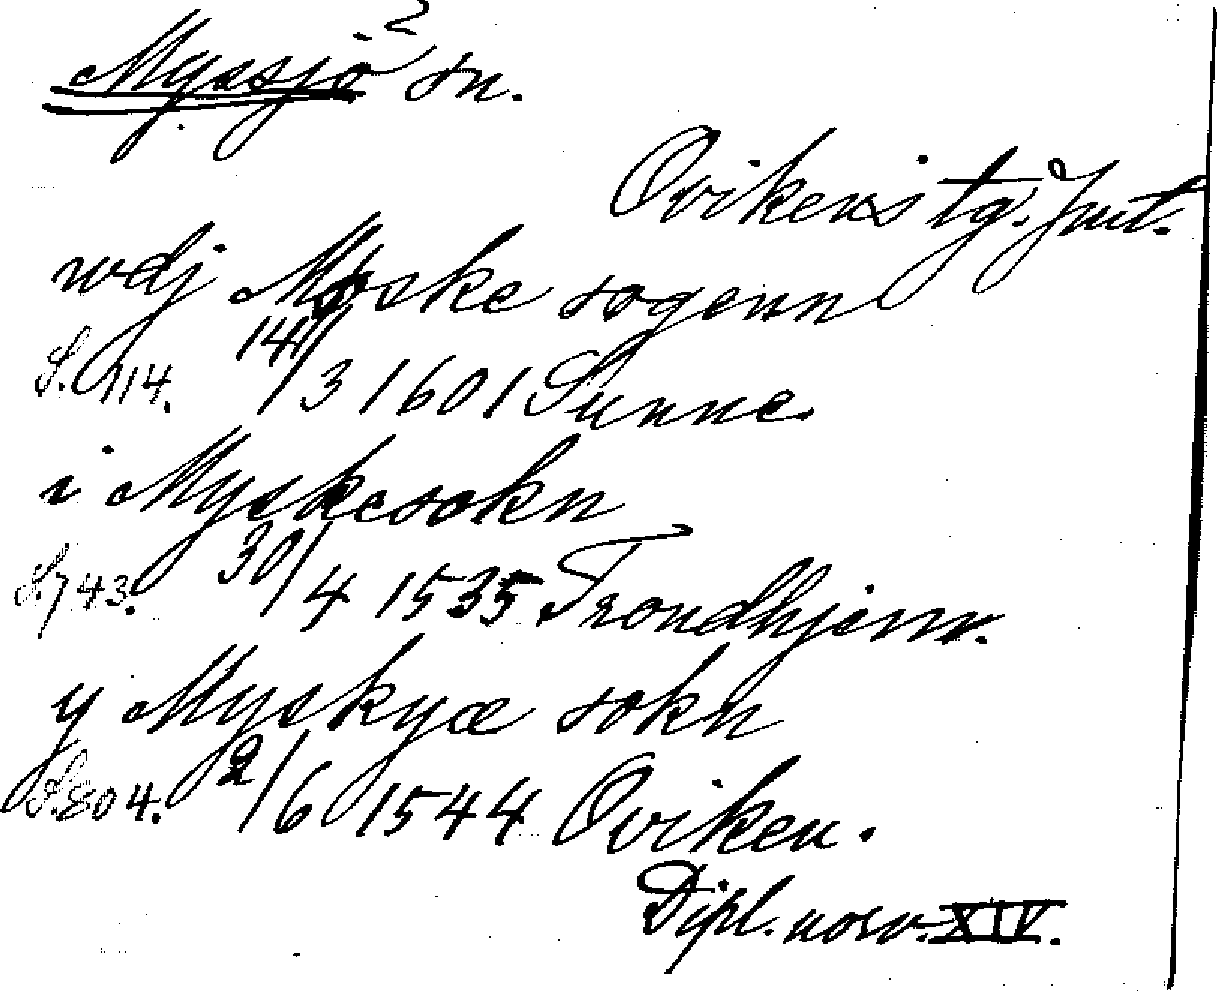 2
Myssjö sn.
Ovikens tg. Jmt.
wdj Myske sogenn
S. 114. 14/3 1601 Sunne.
i Myskesokn
S. 743. 30/4 1535 Trondhjem.
y Myskyæ sokn
S. 804. 2/6 1544 Oviken.
Dipl. norv. XIV.